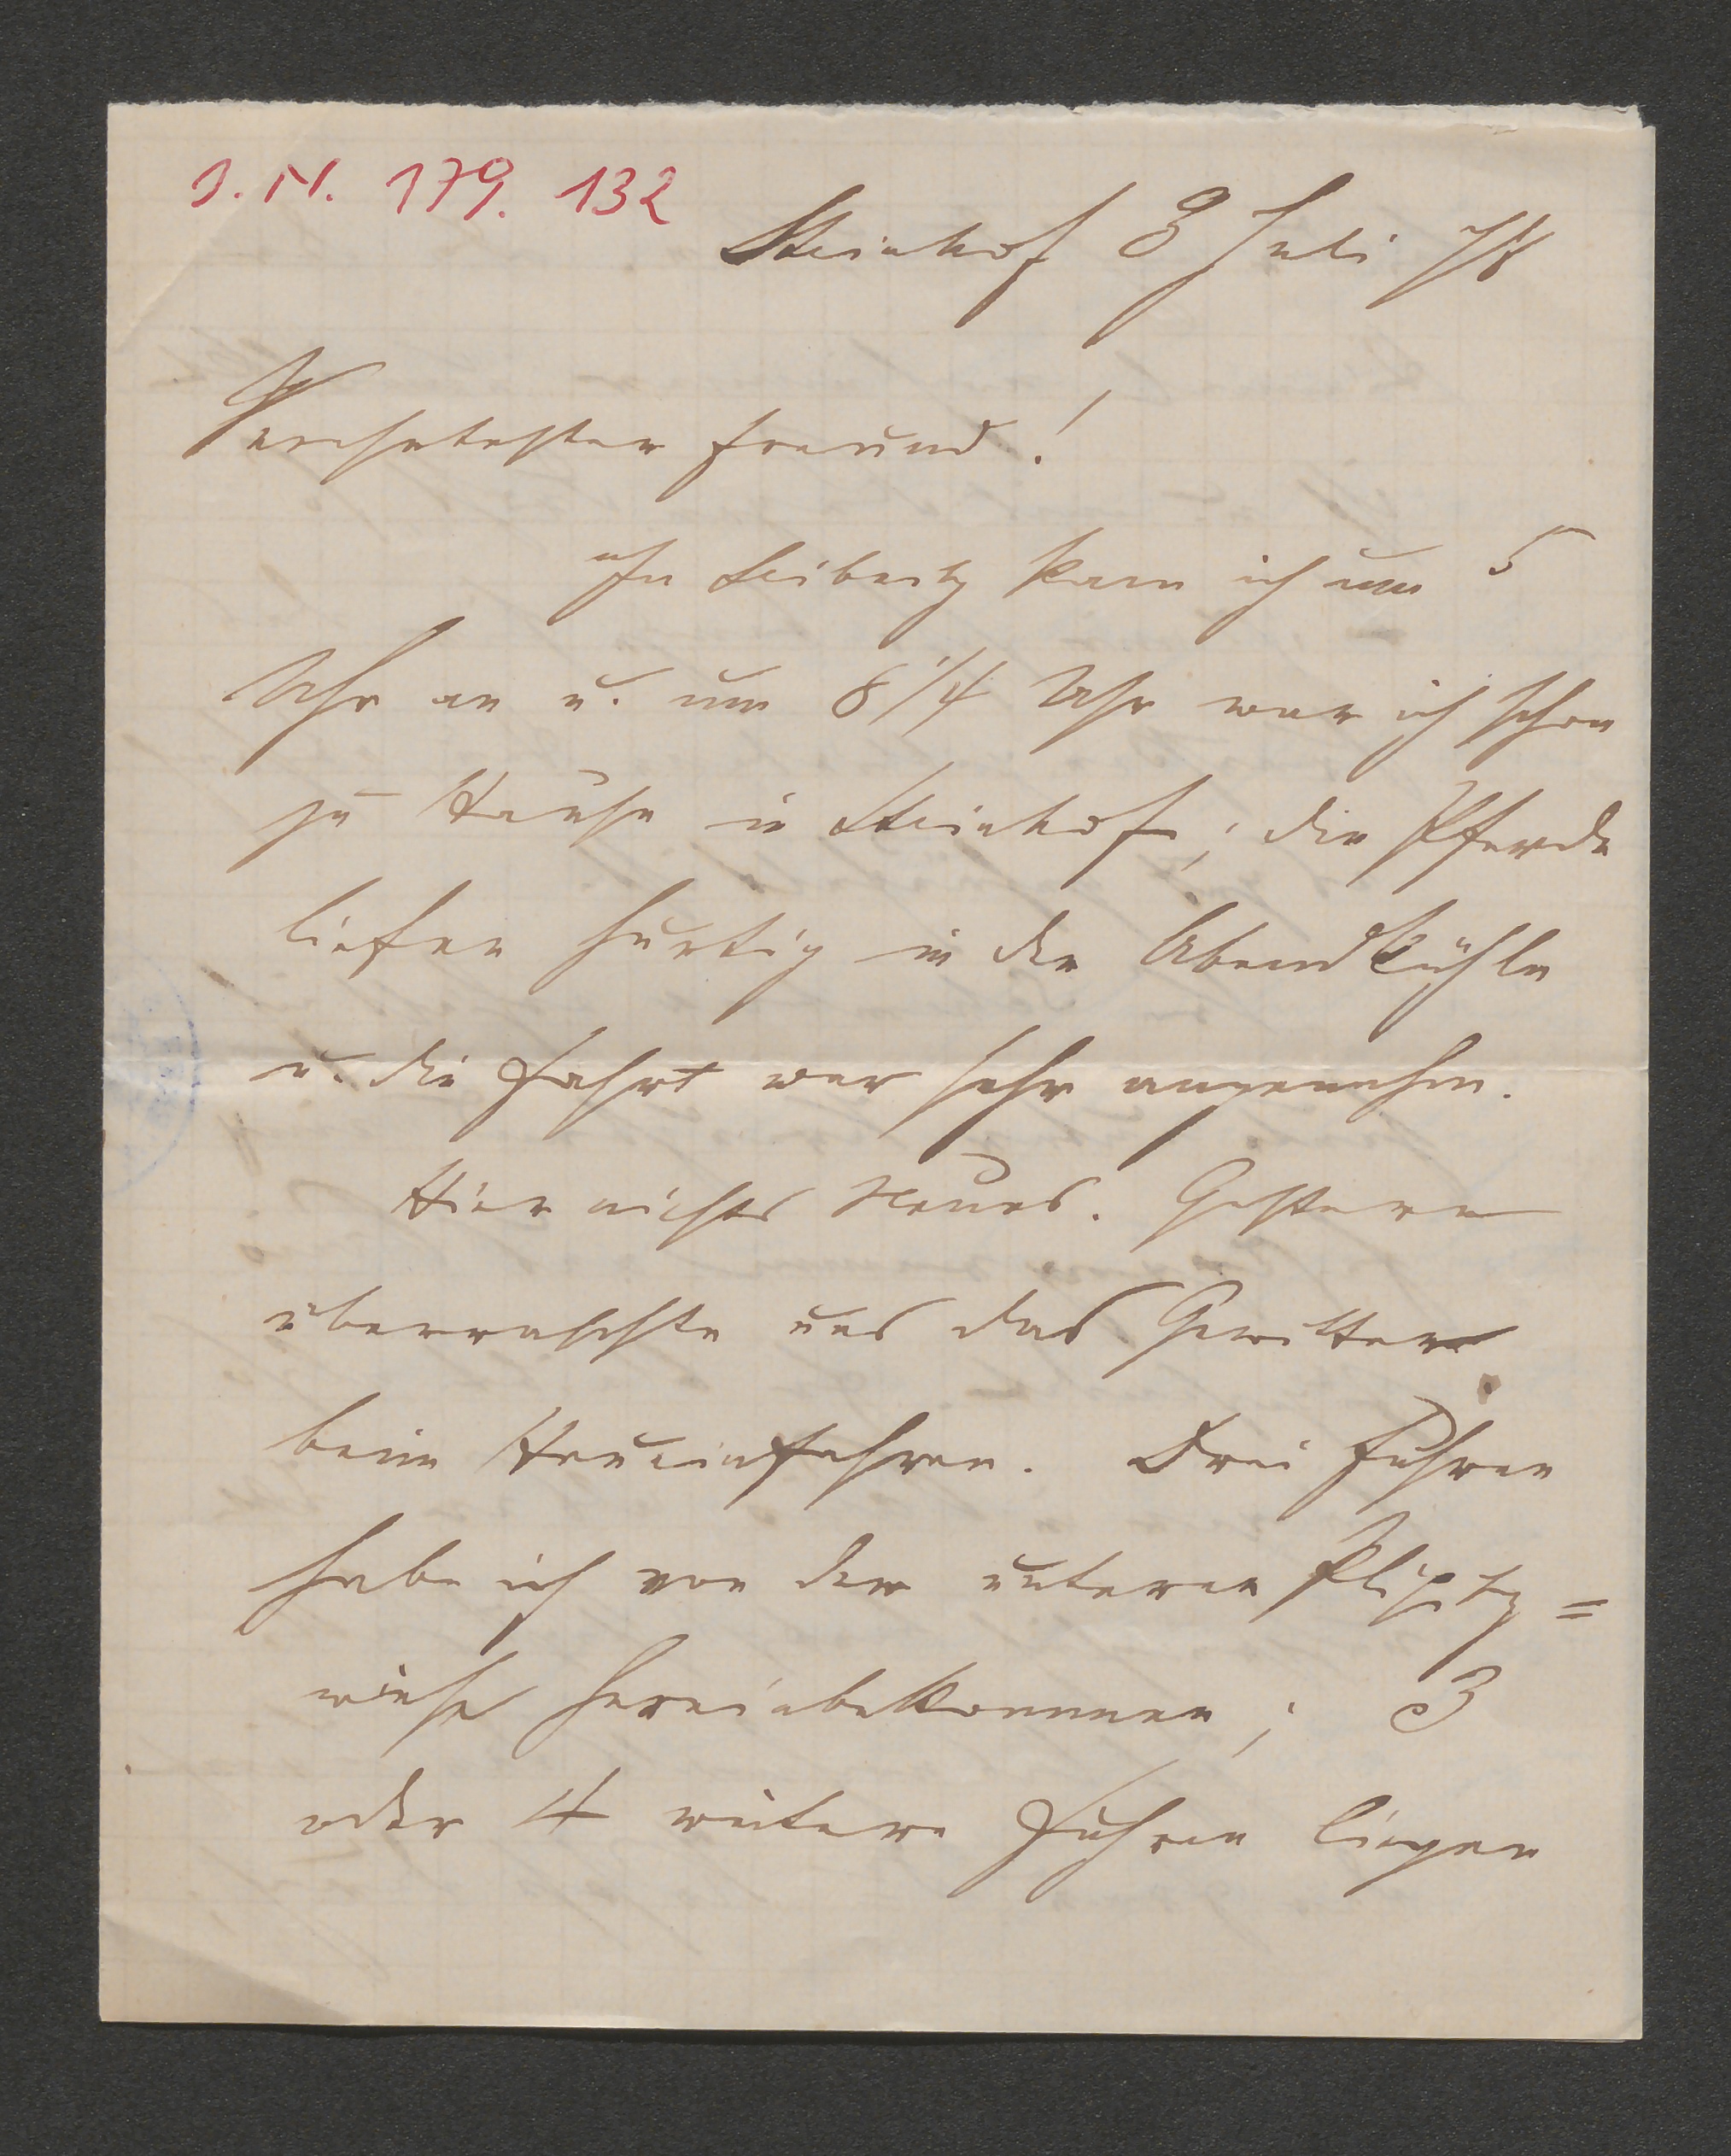 I.N. 179.132
Steinhof 8 Juli 78
Verehrtester Freund!
In Leibnitz kam ich um 5
Uhr an u. um 6 1/4 Uhr war ich schon
zu Hause in Steinhof; die Pferde
liefen hurtig in der Abendkühle
u. die Fahrt war sehr angenehm.
Hier nichts Neues. Gestern
überraschte uns das Gewitter
beim Heueinfahren. Drei Fuhren
habe ich von der unteren
wiese hereinbekommen; 3
oder 4 weitere Fuhren liegen